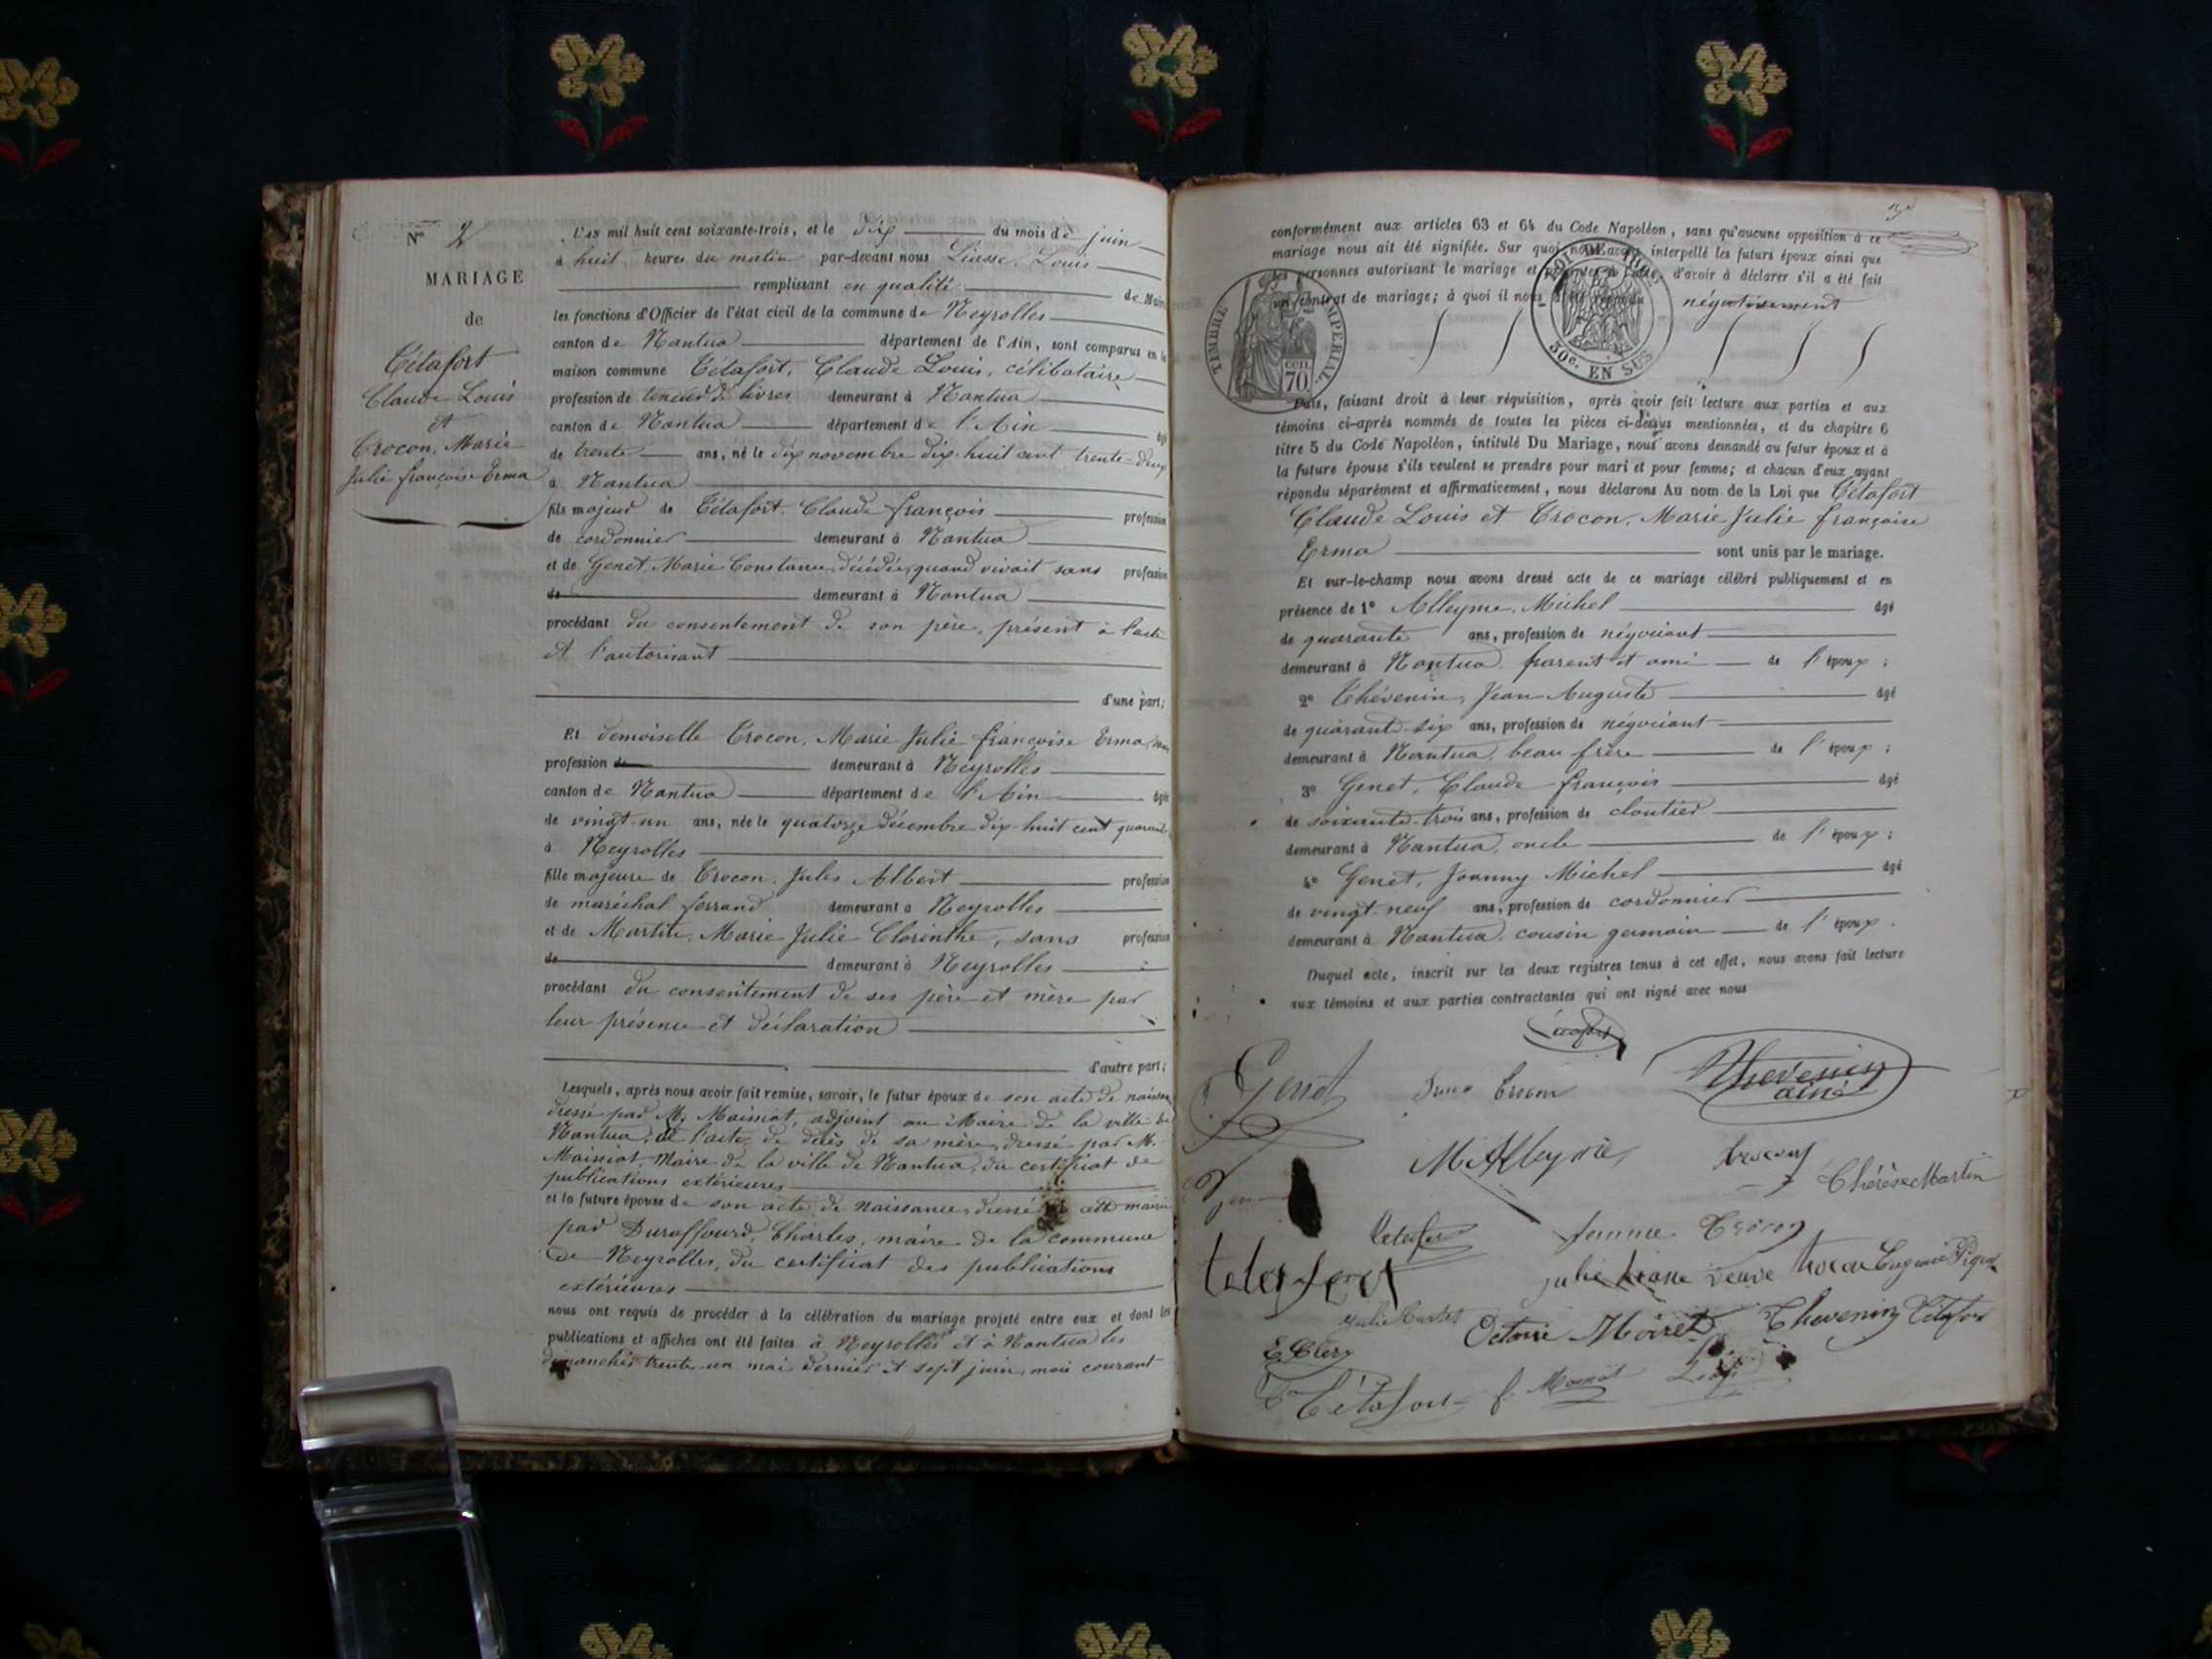 N° 2
MARIAGE
de
Tétafort
Claude Louis
et
Crocon, Marie
Julie françoise Erma
L'an mil huit cent soixante-trois, et le dix du mois de juin
à huit heures du matin par-devant nous Liasse, Louis
remplissant en qualité de Maire
les fonctions d'Officier de l'état civil de la commune de Neyrolles
canton de Nantua département de l'Ain, sont comparus en la
maison commune Tétafort, Claude Louis, célibataire
profession de teneur de livres demeurant à Nantua
canton de Nantua département de l'Ain âgé
de trente ans, né le dix novembre dix-huit cent trente-deux
à Nantua
fils majeur de Tétafort, Claude françois profession
de cordonnier demeurant à Nantua
et de Genet, Marie Constance, décédée, quand vivait sans profession
de demeurant à Nantua
procédant du consentement de son père, présent à l'acte
et l'autorisant
d'une part;
Et demoiselle Crocon, Marie Julie françoise Erma, sans
profession de demeurant à Neyrolles
canton de Nantua département de l'Ain âgée
de vingt-un ans, née le quatorze décembre dix-huit cent quarante
à Neyrolles
fille majeure de Crocon, Jules Albert profession
de maréchal ferrand demeurant à Neyrolles
et de Martin, Marie Julie Clorinthe, sans profession
de demeurant à Neyrolles
procédant du consentement de ses père et mère par
leur présence et déclaration
d'autre part;
Lesquels, après nous avoir fait remise, savoir, le futur époux de son acte de naissance
dressé par M. Mainiat, adjoint au Maire de la ville de
Nantua, de l'acte de décès de sa mère, dressé par M.
Mainiat, Maire de la ville de Nantua, du certificat de
publications extérieures
et la future épouse de son acte de naissance, dressé mairie
par Duraffourd, Charles, maire de la commune
de Neyrolles, du certificat des publications
extérieures
nous ont requis de procéder à la célébration du mariage projeté entre eux et dont les
publications et affiches ont été faites à Neyrolles et à Nantua les
dimanches trente-un mai dernier et sept juin, mois courant
conformément aux articles 63 et 64 du Code Napoléon, sans qu'aucune opposition à ce
mariage nous ait été signifiée. Sur quoi nous avons interpellé les futurs époux ainsi que
les personnes autorisant le mariage et présentes à l'acte, d'avoir à déclarer s'il a été fait
un contrat de mariage; à quoi il nous a été répondu négativement
TIMBRE IMPÉRIAL
cen. 70
LOI DE 1862
50c. EN SUS
Puis, faisant droit à leur réquisition, après avoir fait lecture aux parties et aux
témoins ci-après nommés de toutes les pièces ci-dessus mentionnées, et du chapitre 6
titre 5 du Code Napoléon, intitulé Du Mariage, nous avons demandé au futur époux et à
la future épouse s'ils veulent se prendre pour mari et pour femme; et chacun d'eux ayant
répondu séparément et affirmativement, nous déclarons Au nom de la Loi que Tétafort
Claude Louis et Crocon, Marie Julie françoise
Erma sont unis par le mariage.
Et sur-le-champ nous avons dressé acte de ce mariage célébré publiquement et en
présence de 1° Alleyme, Michel âgé
de quarante ans, profession de négociant
demeurant à Nantua, parent et ami de l'époux;
2° Thévenin, Jean Auguste âgé
de quarante-six ans, profession de négociant
demeurant à Nantua, beau frère de l'époux;
3° Genet, Claude françois âgé
de soixante-trois ans, profession de cloutier
demeurant à Nantua, oncle de l'époux;
4° Genet, Joanny Michel âgé
de vingt-neuf ans, profession de cordonnier
demeurant à Nantua, cousin germain de l'époux.
Duquel acte, inscrit sur les deux registres tenus à cet effet, nous avons fait lecture
aux témoins et aux parties contractantes qui ont signé avec nous
Genet
Thévenin
aîné
Thérèse Martin
femme Crocon
Octavie Moiret
Thevenin Tétafort
Tétafort